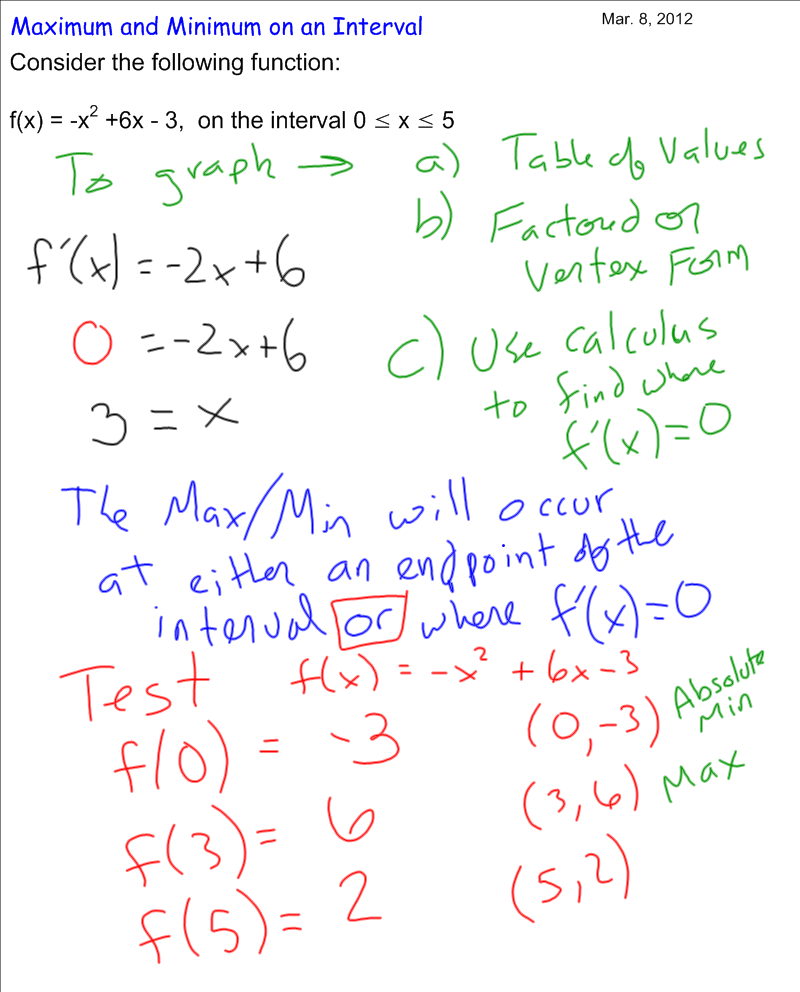 Maximum and Minimum on an Interval
Mar. 8, 2012
Consider the following function:
f(x) = -x² +6x - 3,  on the interval 0 ≤ x ≤ 5
To graph → a) Table of Values
b) Factored or
Vertex Form
f'(x) = -2x+6
0 = -2x+6
3 = x
c) Use calculus
to find where
f'(x)=0
The Max/Min will occur
at either an endpoint of the
interval or where f'(x)=0
Test f(x) = -x² + 6x -3
f(0) = -3 (0,-3) Absolute
Min
f(3) = 6 (3,6) Max
f(5) = 2 (5,2)